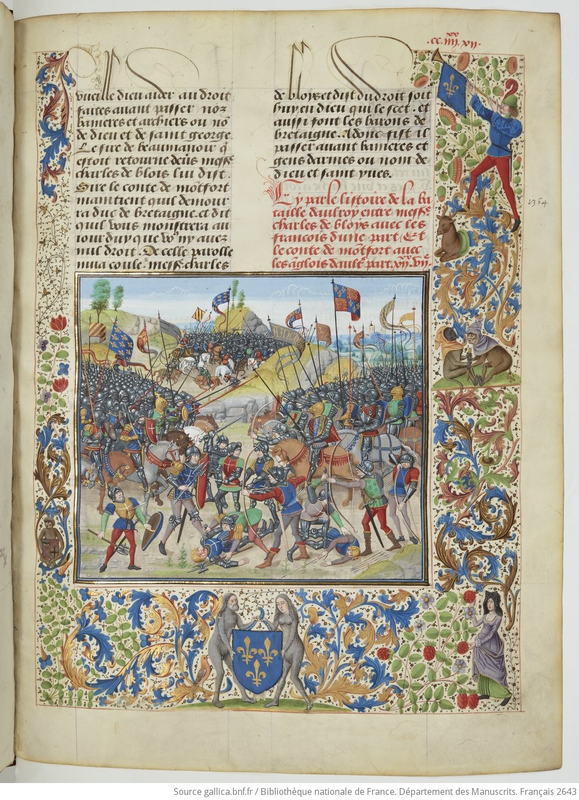 xx
cc.iiii.xvii.
vueille dieu aider au droit
faites auant passer noz
banieres et archiers ou no
de dieu et de saint george
Le sire de beaumanoir q̃
estoit retourne deũs messe
charles de blois lui dist.
Sire le conte de mõtfort
maintient quil demour
ra duc de bretaigne. et dit
quil vous monstrera au
iour duy que
nul droit. De celle parolle
mua coule. mess. charles
de bloys et dist du droit soit
huy en dieu qui le scet. et
aussi font les barons de
bretaigne. Adonc fist il
passer auant banieres et
gens darmes ou nom de
dieu et saint yues.
Cy parle listoire de la ba
taille daulroy entre messe
charles de bloys auec les
francois dune part. Et
le conte de mõtfort auec
les ãglois daultr part.
1364
Source gallica.bnf.fr / Bibliothèque nationale de France. Département des Manuscrits. Français 2643